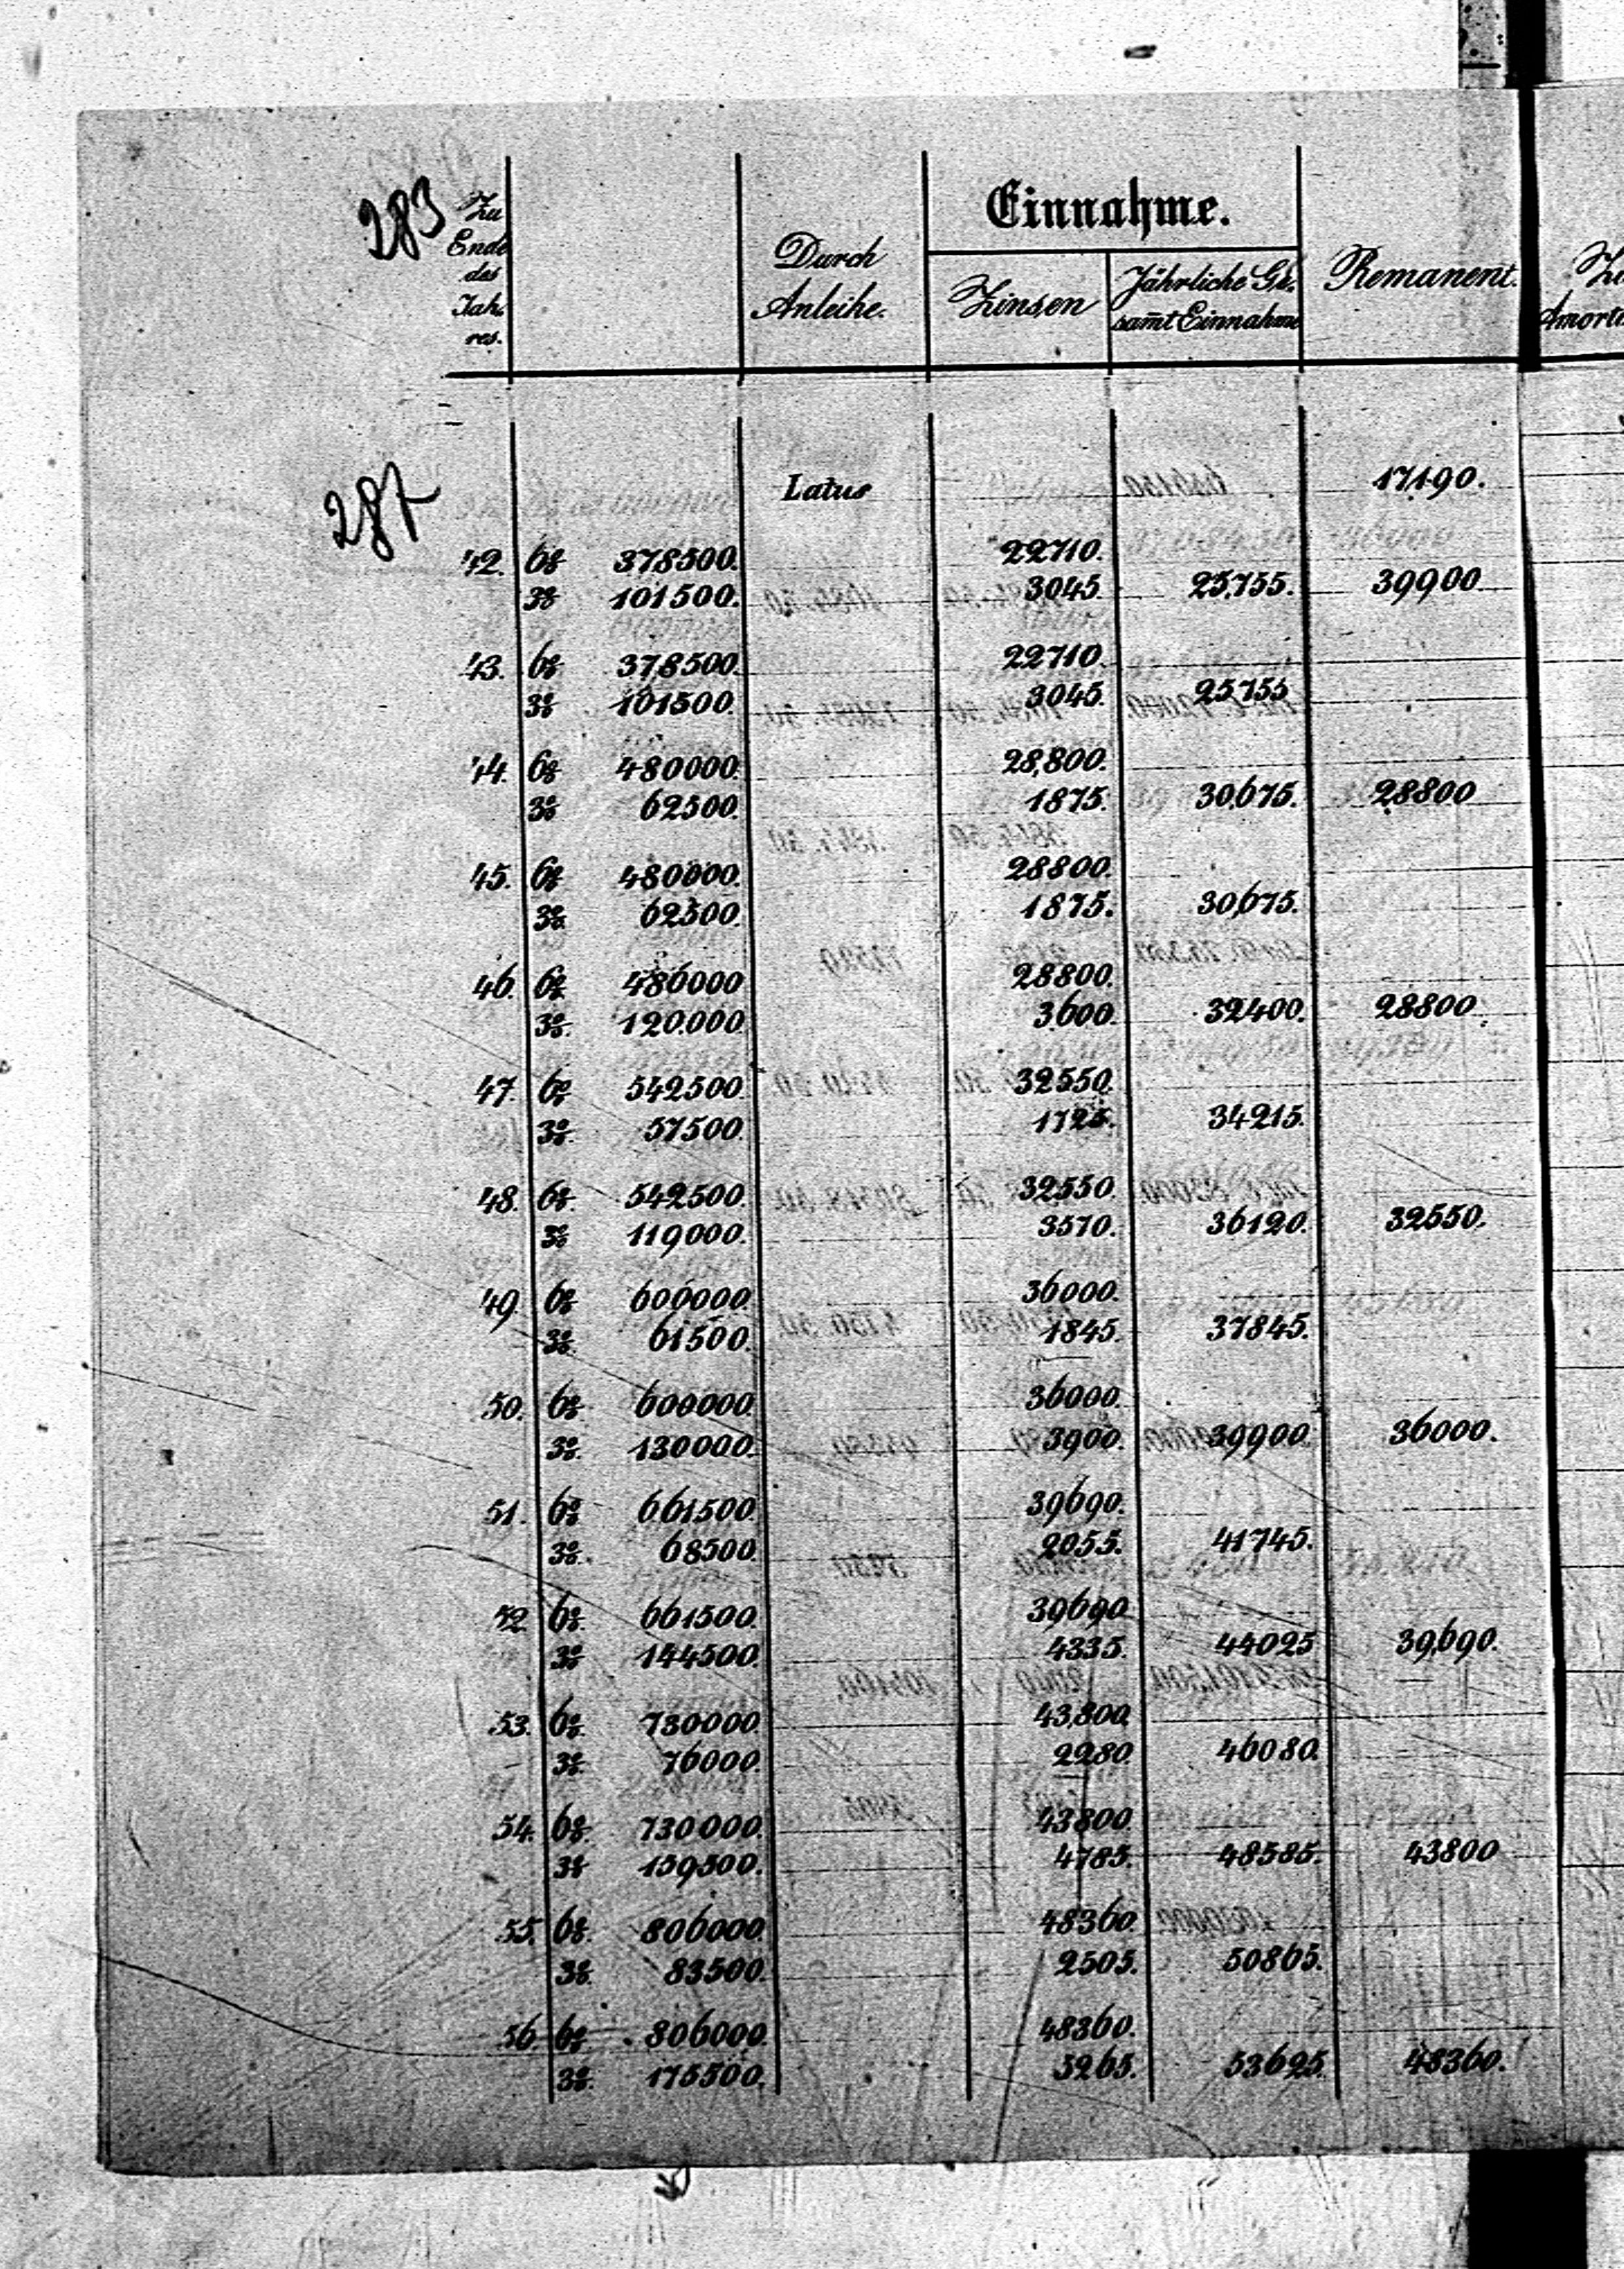 283
Zu Ende des Jah- res.
Durch Anleihe.
Einnahme.
Zinsen
Jährliche Ge- samt Einnahme
Remanent.
287
Latus 17190.
42. 6% 378500. 22710.
3% 101500. 3045. 25,755. 39900
43. 6% 378500. 22710.
3% 101500. 3045. 25755
44. 6% 480000. 28,800.
3% 62500. 1875. 30,675. 28800
45. 6% 480000. 28800.
3% 62500. 1875. 30,675.
46. 6% 480000 28800.
3% 120.000 3600. 32400. 28800.
47. 6% 542500. 32550.
3% 57500. 1725. 34215.
48. 6% 542500. 32550.
3% 119000. 3570. 36120. 32550.
49. 6% 600000. 36000.
3% 61500. 1845. 37845.
50. 6% 600000. 36000.
3% 130000. 3900. 39900. 36000.
51. 6% 661500. 39690.
3% 68500. 2055. 41745.
52. 6% 661500. 39690
3% 144500. 4335. 44025 39,690.
53. 6% 730000. 43,800
3% 76000. 2280 46080.
54. 6% 730000. 43800.
3% 159500. 4785. 48585. 43800
55. 6% 806000. 48360.
3% 83500. 2505. 50865.
56. 6% 806000. 48360.
3% 175500. 5265. 53625. 48360.